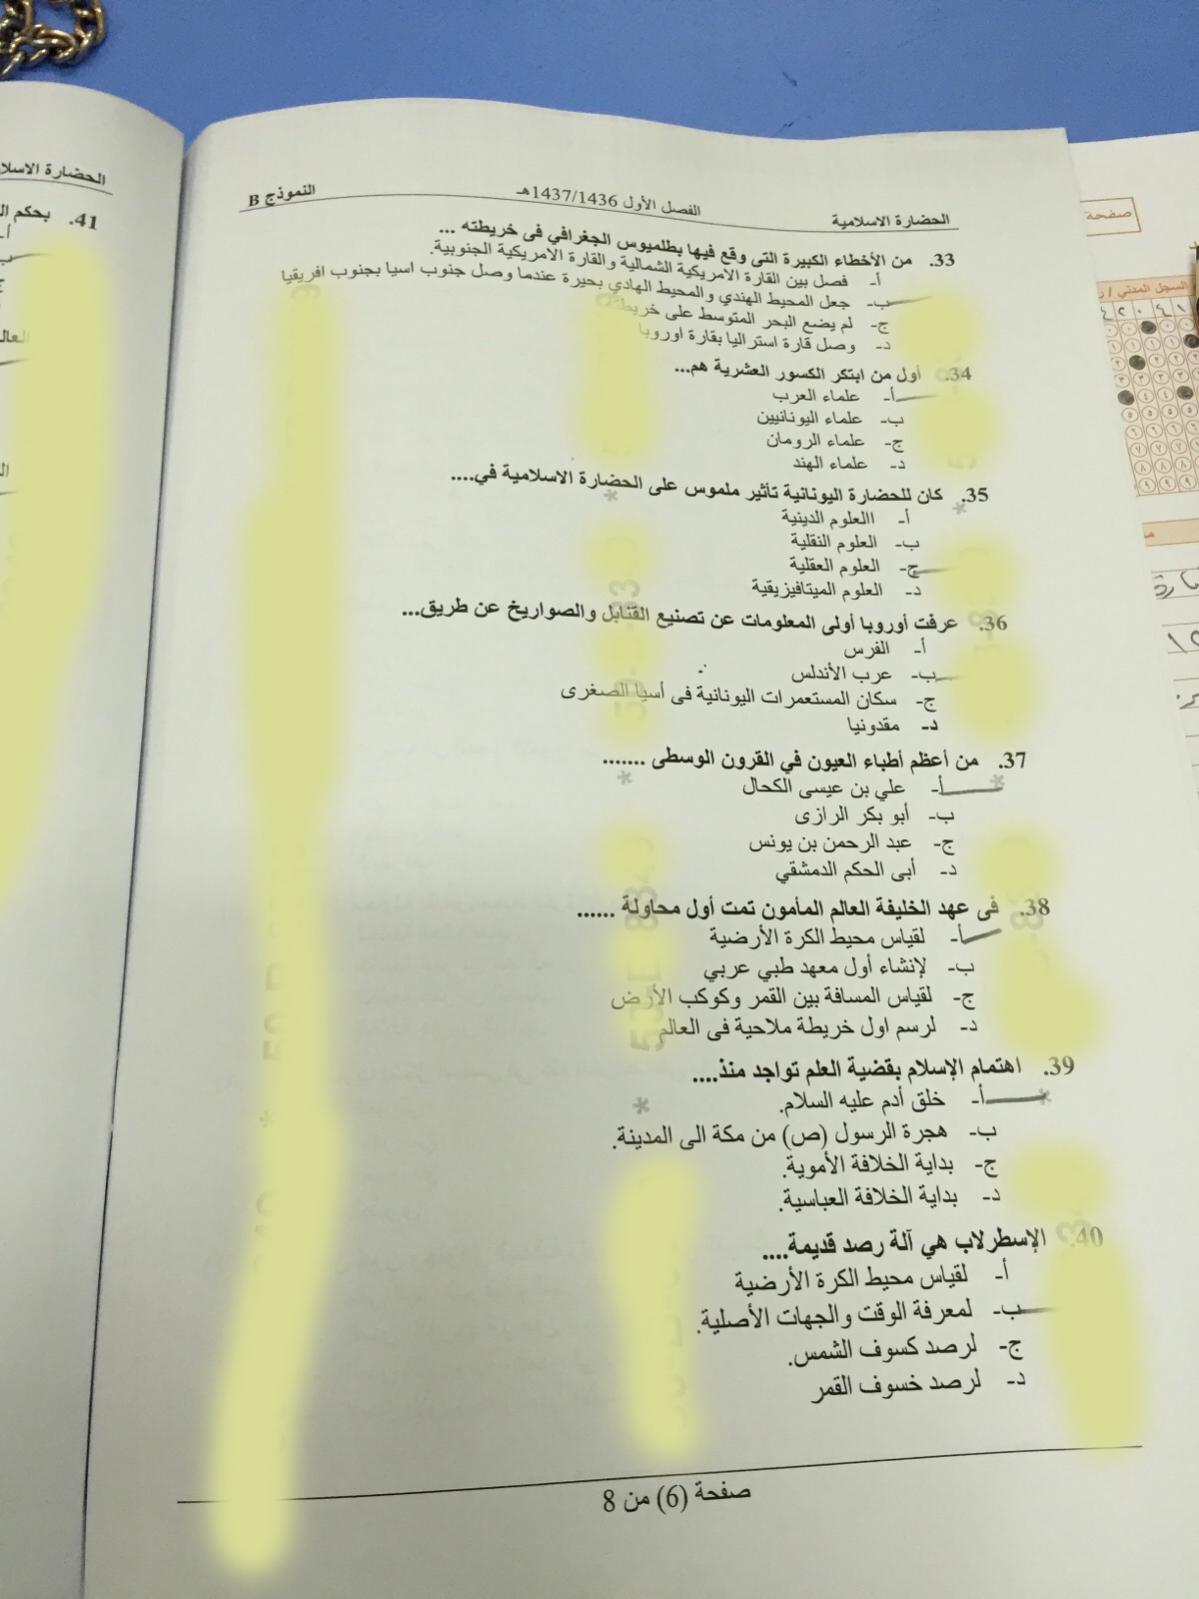 الحضارة الاسلامية
الفصل الأول 1437/1436هـ
النموذج B
33. من الأخطاء الكبيرة التى وقع فيها بطلميوس الجغرافي فى خريطته ...
أ- فصل بين القارة الامريكية الشمالية والقارة الامريكية الجنوبية.
ب- جعل المحيط الهندي والمحيط الهادي بحيرة عندما وصل جنوب اسيا بجنوب افريقيا
ج- لم يضع البحر المتوسط على
د- وصل قارة استراليا بقارة اوروبا
34. أول من ابتكر الكسور العشرية هم...
أ- علماء العرب
ب- علماء اليونانيين
ج- علماء الرومان
د- علماء الهند
35. كان للحضارة اليونانية تأثير ملموس على الحضارة الاسلامية في....
أ- االعلوم الدينية
ب- العلوم النقلية
ج- العلوم العقلية
د- العلوم الميتافيزيقية
36. عرفت أوروبا أولى المعلومات عن تصنيع القنابل والصواريخ عن طريق...
أ- الفرس
ب- عرب الأندلس
ج- سكان المستعمرات اليونانية فى أسيا الصغرى
د- مقدونيا
37. من أعظم أطباء العيون في القرون الوسطى .......
أ- علي بن عيسى الكحال
ب- أبو بكر الرازى
ج- عبد الرحمن بن يونس
د- أبى الحكم الدمشقي
38. فى عهد الخليفة العالم المأمون تمت أول محاولة ......
أ- لقياس محيط الكرة الأرضية
ب- لإنشاء أول معهد طبي عربي
ج- لقياس المسافة بين القمر وكوكب الأرض
د- لرسم اول خريطة ملاحية فى العالم
39. اهتمام الإسلام بقضية العلم تواجد منذ....
أ- خلق أدم عليه السلام.
ب- هجرة الرسول (ص) من مكة الى المدينة.
ج- بداية الخلافة الأموية.
د- بداية الخلافة العباسية.
40. الإسطرلاب هي آلة رصد قديمة....
أ- لقياس محيط الكرة الأرضية
ب- لمعرفة الوقت والجهات الأصلية.
ج- لرصد كسوف الشمس.
د- لرصد خسوف القمر
صفحة (6) من 8
41. بحكم
أ-
صفحة
السجل المدني /